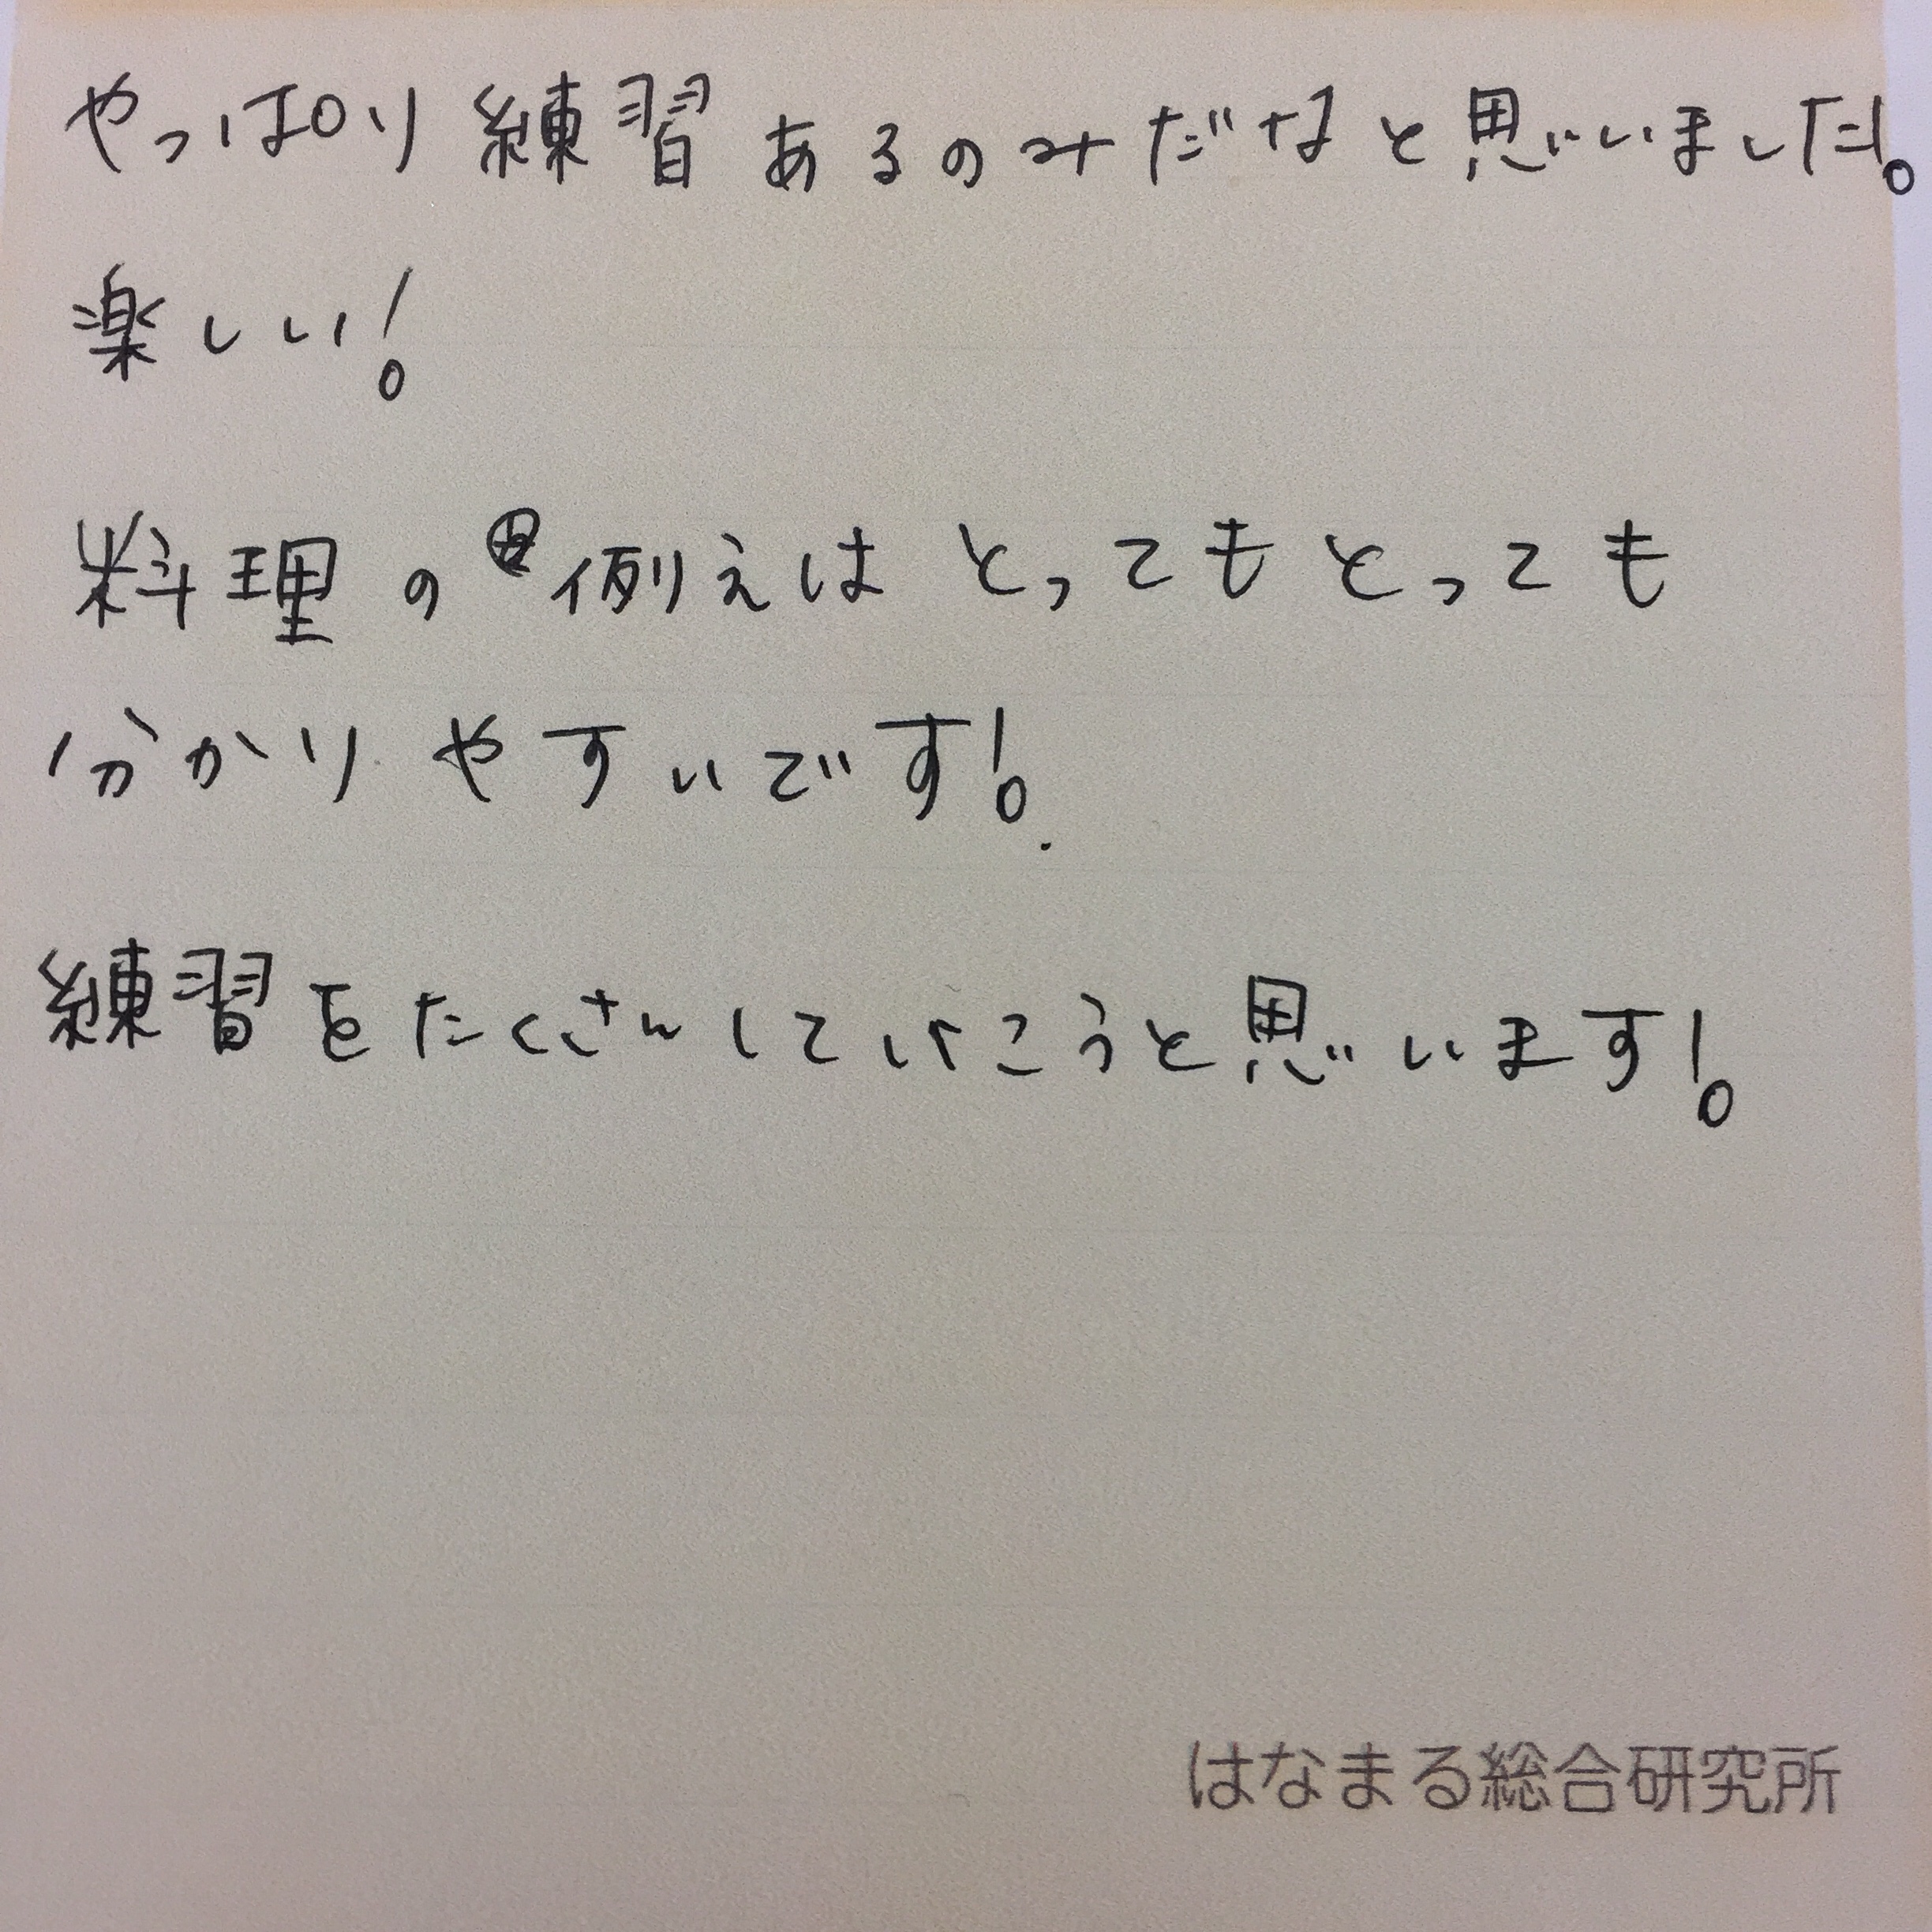 やっぱり練習あるのみだなと思いました!
楽しい!
料理の例えはとってもとっても
分かりやすいです!
練習をたくさんしていこうと思います!
はなまる総合研究所